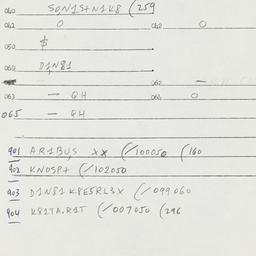 040 SØN1S+N1K8 (259
041 0 042 0
050 $
060 D1N81
062 —
063 — QH 064 0
065 — QH
401 AR1BUS XX (/100050 (160
402 KNOSP+ (/102050
403 D1N81 K8E5RL3X (/099060
404 K81TA.R1T (/007050 (296